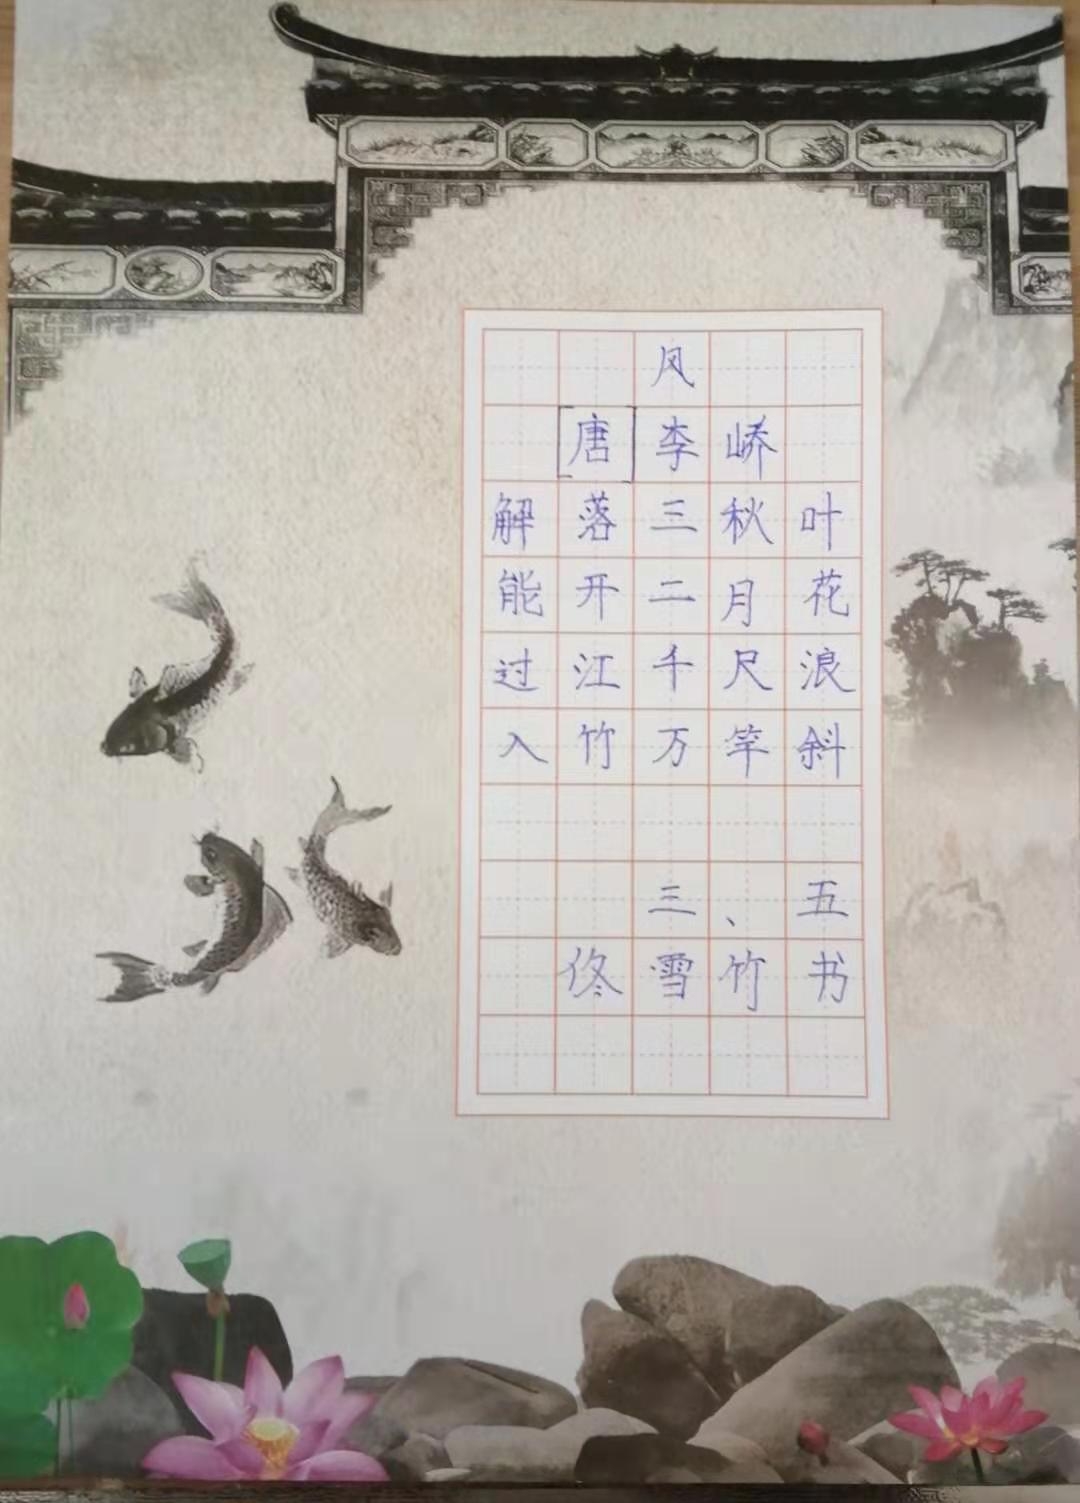 风
[唐]李峤
解落三秋叶
能开二月花
过江千尺浪
入竹万竿斜
三、五
佟雪竹书